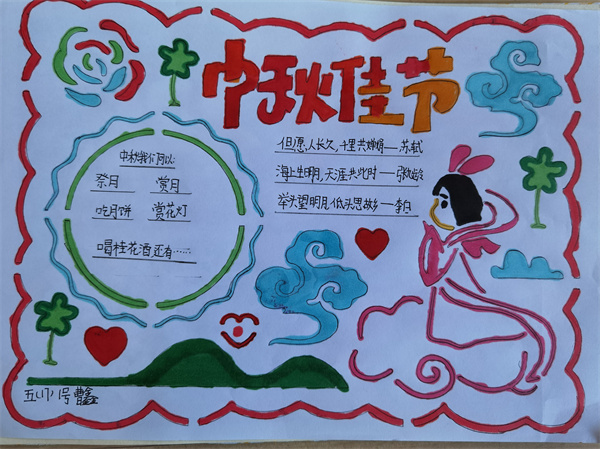 中秋佳节
中秋我们可以:
祭月 赏月
吃月饼 赏花灯
喝桂花酒还有······
但愿人长久,千里共婵娟——苏轼
海上生明月,天涯共此时——张九龄
举头望明月,低头思故乡——李白
五(17)1号曹鑫